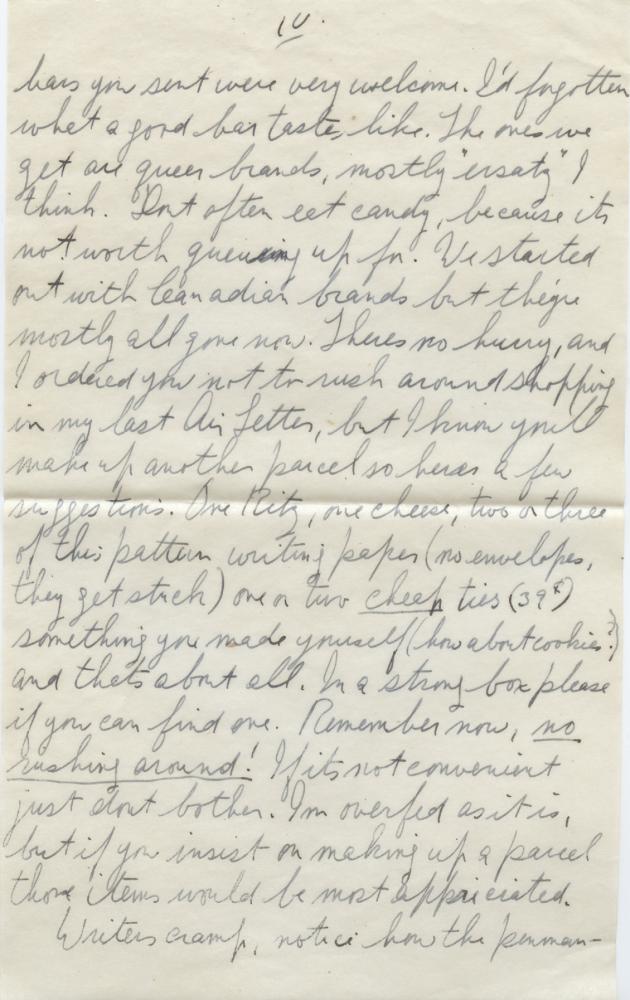 IV.
bars you sent were very welcome. I'd forgotten
what a good bar tastes like. The ones we
get are queer brands, mostly "ersatz" I
think. Dont often eat candy, because its
not worth queuing up for. We started
out with Canadian brands but they're
mostly all gone now. Theres no hurry, and
I ordered you not to rush around shopping
in my last Air Letter, but I know you'll
make up another parcel so heres a few
suggestions. One Ritz, one cheese, two or three
of this pattern writing paper (no envelopes,
they get stuck) one or two cheep ties (39¢)
something you made yourself (how about cookies?)
and thats about all. In a strong box please
if you can find one. Remember now, no
rushing around! If its not convenient
just dont bother. I'm overfed as it is,
but if you insist on making up a parcel
those items would be most appriciated.
Writers cramp, notice how the penman-